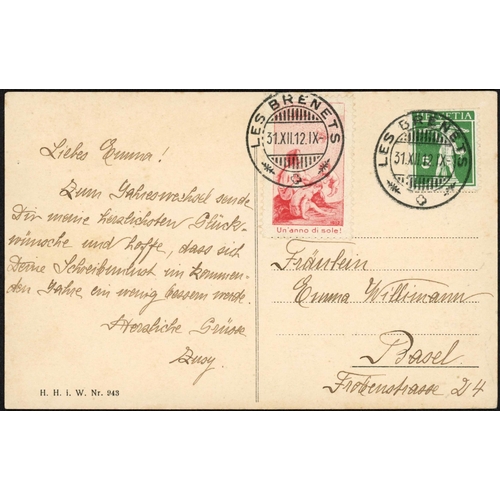 Liebes Emma!
Zum Jahreswechsel sende
Dir meine herzlichsten Glück-
wünsche und hoffe, dass sich
Deine Schreibunlust im kommen-
den Jahre ein wenig bessern werde.
Herzliche Grüsse
Susy.
H. H. i. W. Nr. 943
LES BRENETS
31.XII.12.IX-
Un'anno di sole!
HELVETIA
5
LES BRENETS
31.XII.12.IX-
Fräulein
Emma Willimann
Basel
Frobenstrasse 24